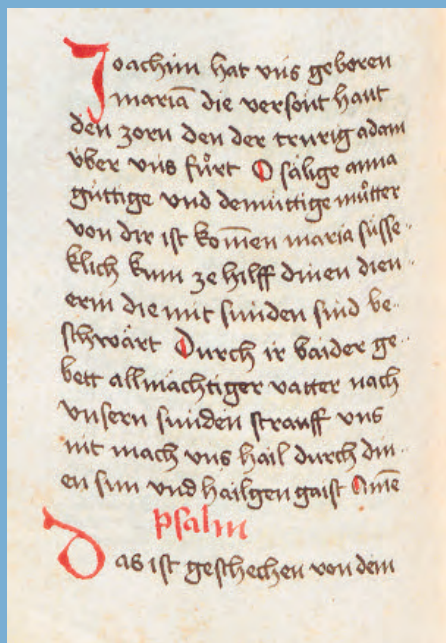 Joachim hat vns geboren
mariā die versönt haut
den zorn den der trurig adam
über vns fůrt O sälige anna
gúttige vnd demúttige můtter
von dir ist kom̄en maria süsse-
klich kum ze hilff dinen dien-
erin die mit sunden sind be-
schwärt Durch ir baider ge-
bett allmächtiger vatter nach
vnsern sunden strauff vns
nit mach vns hail durch din-
en sun vnd hailgen gaist Amē
psalm
Das ist geschechen von dem